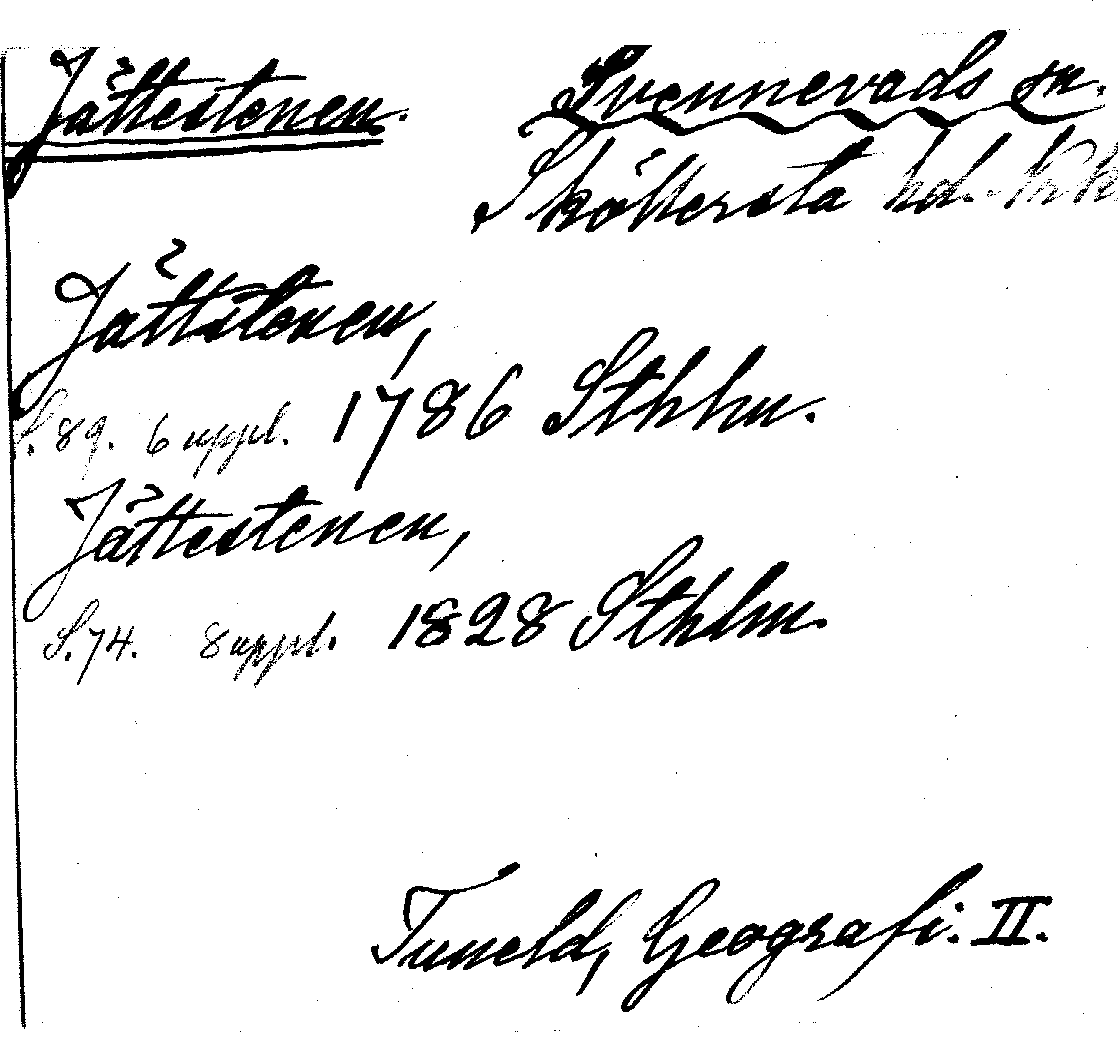 Jättestenen.
Svennevads sn.
Sköllersta hd.
Jättstenen,
S. 89. 6 uppl. 1786 Sthlm.
Jättestenen,
S. 74. 8 uppl. 1828 Sthlm.
Tuneld, Geografi. II.